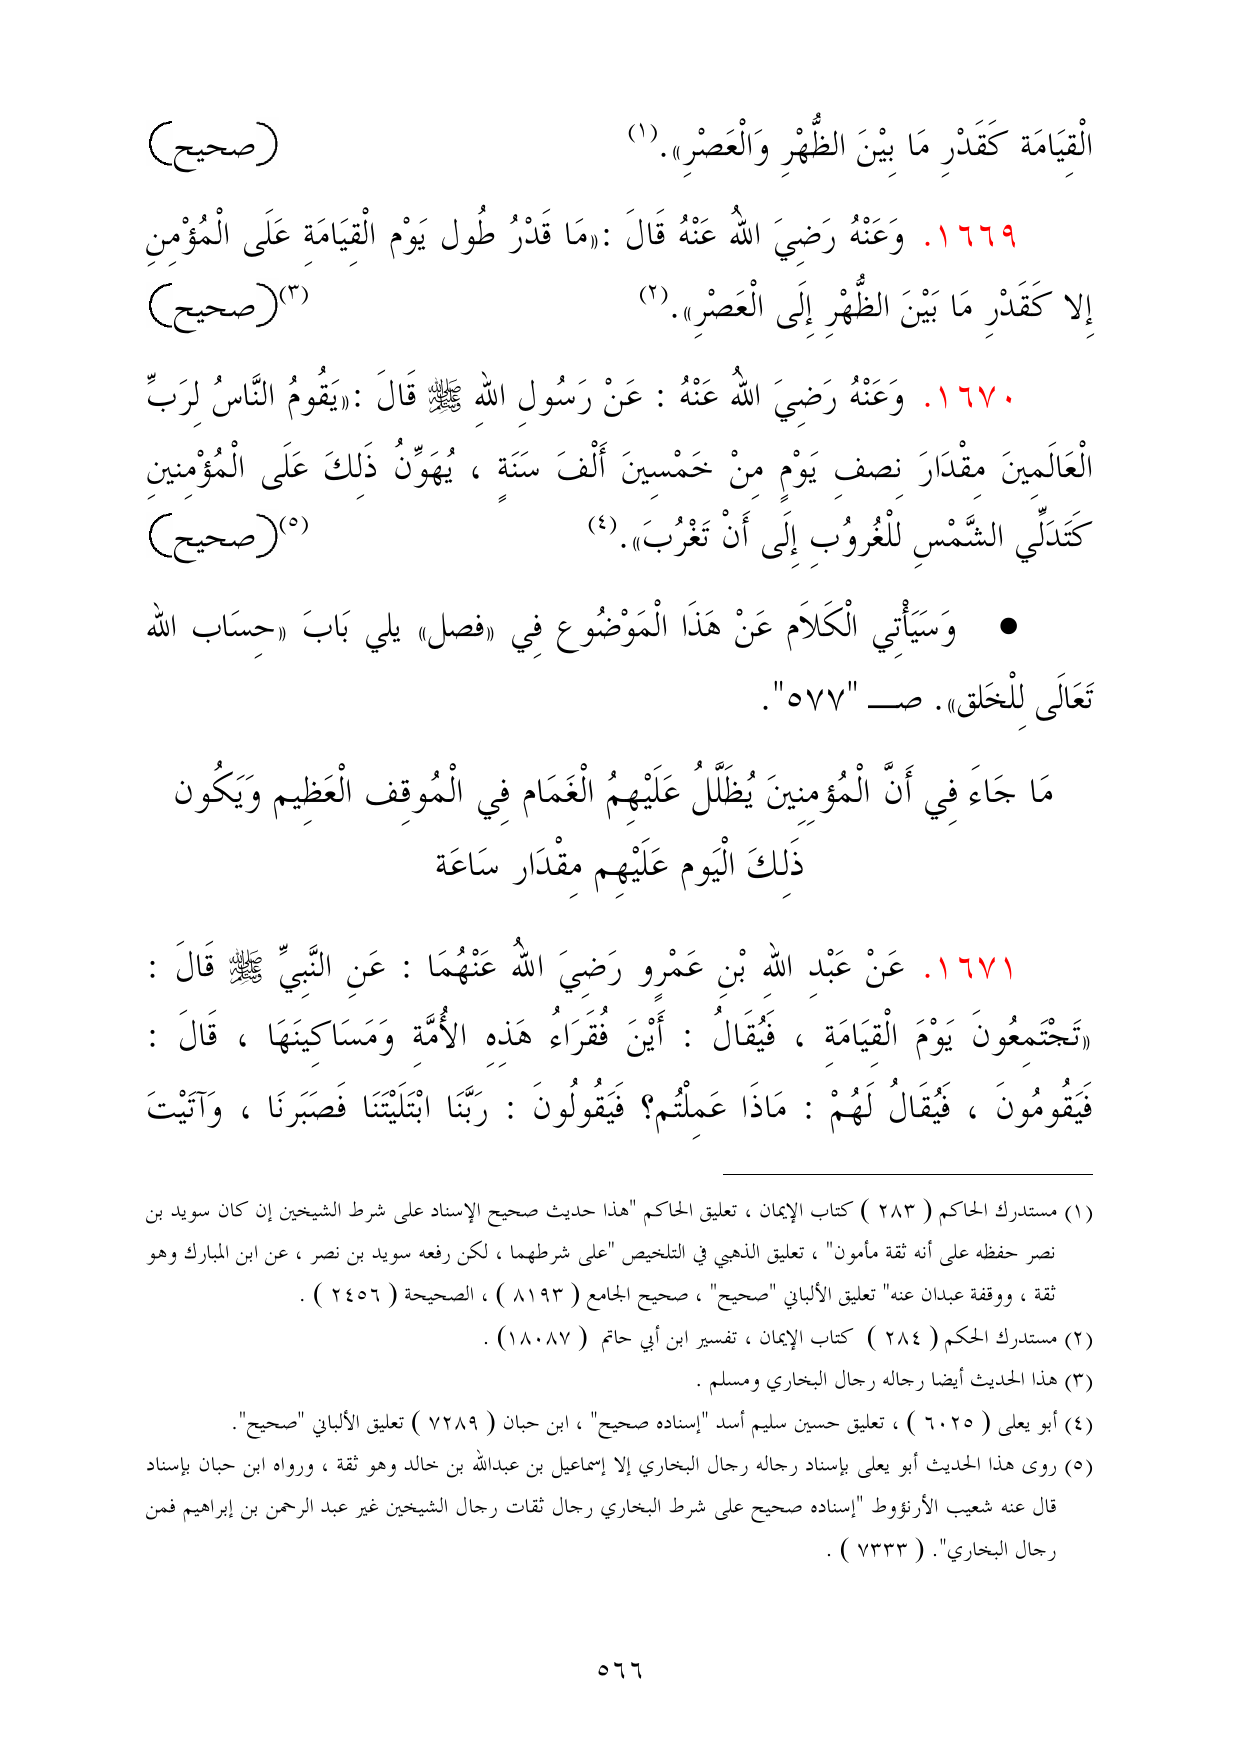 الْقِيَامَة كَقَدْرِ مَا بِيْنَ الظُّهْرِ وَالْعَصْرِ».(١) (صحيح)
١٦٦٩. وَعَنْهُ رَضِيَ اللهُ عَنْهُ قَالَ :«مَا قَدْرُ طُول يَوْم الْقِيَامَةِ عَلَى الْمُؤْمِنِ
إِلا كَقَدْرِ مَا بَيْنَ الظُّهْرِ إِلَى الْعَصْرِ».(٢) (٣)(صحيح)
١٦٧٠. وَعَنْهُ رَضِيَ اللهُ عَنْهُ : عَنْ رَسُولِ اللهِ ﷺ قَالَ :«يَقُومُ النَّاسُ لِرَبِّ
الْعَالَمِينَ مِقْدَارَ نِصفِ يَوْمٍ مِنْ خَمْسِينَ أَلْفَ سَنَةٍ ، يُهَوِّنُ ذَلِكَ عَلَى الْمُؤْمِنِينِ
كَتَدَلِّي الشَّمْسِ لِلْغُرُوُبِ إِلَى أَنْ تَغْرُبَ».(٤) (٥)(صحيح)
● وَسَيَأْتِي الْكَلاَم عَنْ هَذَا الْمَوْضُوع فِي «فصل» يلي بَابَ «حِسَاب الله
تَعَالَى لِلْخَلق». صـــ "٥٧٧".
مَا جَاءَ فِي أَنَّ الْمُؤمِنِينَ يُظَلَّلُ عَلَيْهِمُ الْغَمَام فِي الْمُوقِف الْعَظِيم وَيَكُون
ذَلِكَ الْيَوم عَلَيْهِم مِقْدَار سَاعَة
١٦٧١. عَنْ عَبْدِ اللهِ بْنِ عَمْرٍو رَضِيَ اللهُ عَنْهُمَا : عَنِ النَّبِيِّ ﷺ قَالَ :
«تَجْتَمِعُونَ يَوْمَ الْقِيَامَةِ ، فَيُقَالُ : أَيْنَ فُقَرَاءُ هَذِهِ الأُمَّةِ وَمَسَاكِينَهَا ، قَالَ :
فَيَقُومُونَ ، فَيُقَالُ لَهُمْ : مَاذَا عَمِلْتُم؟ فَيَقُولُونَ : رَبَّنَا ابْتَلَيْتَنَا فَصَبَرنَا ، وَآتَيْتَ
(١) مستدرك الحاكم ( ٢٨٣ ) كتاب الإيمان ، تعليق الحاكم "هذا حديث صحيح الإسناد على شرط الشيخين إن كان سويد بن
نصر حفظه على أنه ثقة مأمون" ، تعليق الذهبي في التلخيص "على شرطهما ، لكن رفعه سويد بن نصر ، عن ابن المبارك وهو
ثقة ، ووقفة عبدان عنه" تعليق الألباني "صحيح" ، صحيح الجامع ( ٨١٩٣ ) ، الصحيحة ( ٢٤٥٦ ) .
(٢) مستدرك الحكم ( ٢٨٤ ) كتاب الإيمان ، تفسير ابن أبي حاتم ( ١٨٠٨٧) .
(٣) هذا الحديث أيضا رجاله رجال البخاري ومسلم .
(٤) أبو يعلى ( ٦٠٢٥ ) ، تعليق حسين سليم أسد "إسناده صحيح" ، ابن حبان ( ٧٢٨٩ ) تعليق الألباني "صحيح".
(٥) روى هذا الحديث أبو يعلى بإسناد رجاله رجال البخاري إلا إسماعيل بن عبدالله بن خالد وهو ثقة ، ورواه ابن حبان بإسناد
قال عنه شعيب الأرنؤوط "إسناده صحيح على شرط البخاري رجال ثقات رجال الشيخين غير عبد الرحمن بن إبراهيم فمن
رجال البخاري". ( ٧٣٣٣ ) .
٥٦٦